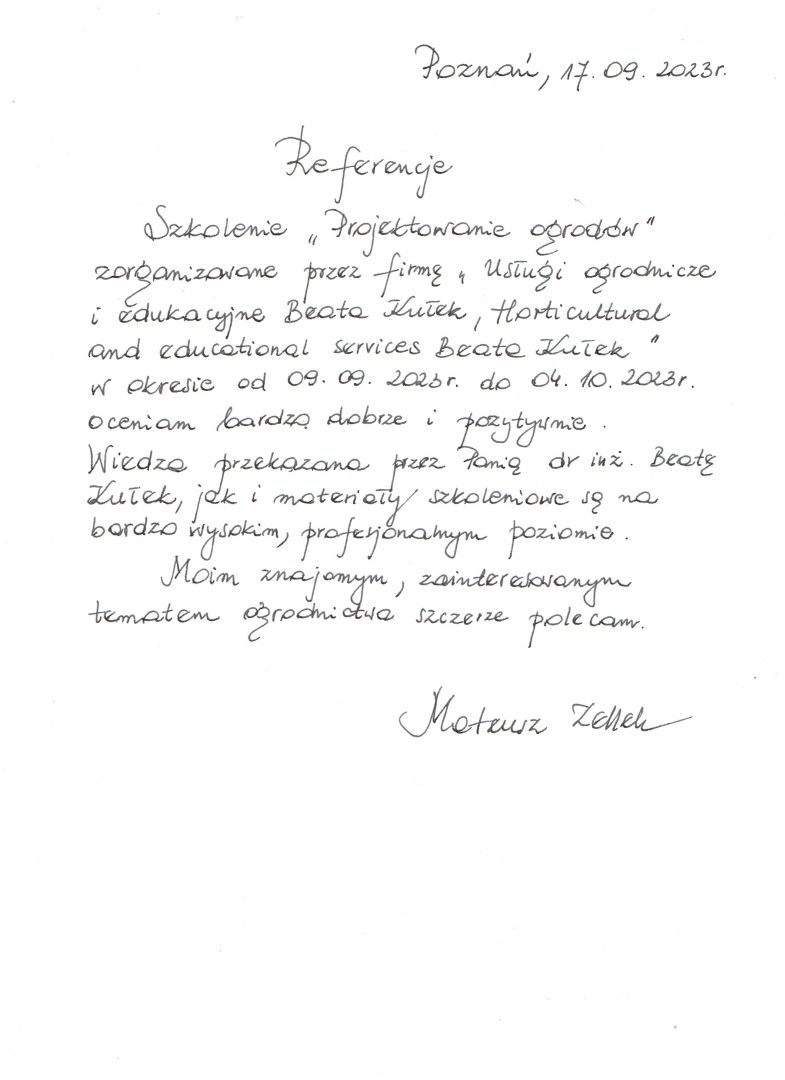 Poznań, 17. 09. 2023r.
Referencje
Szkolenie „Projektowanie ogrodów"
zorganizowane przez firmę „Usługi ogrodnicze
i edukacyjne Beata Kułek, Horticultural
and educational services Beata Kułek"
w okresie od 09. 09. 2023r. do 04. 10. 2023r.
oceniam bardzo dobrze i pozytywnie.
Wiedza przekazana przez Panią dr inż. Beatę
Kułek, jak i materiały szkoleniowe są na
bardzo wysokim, profesjonalnym poziomie.
Moim znajomym, zainteresowanym
tematem ogrodnictwa szczerze polecam.
Mateusz